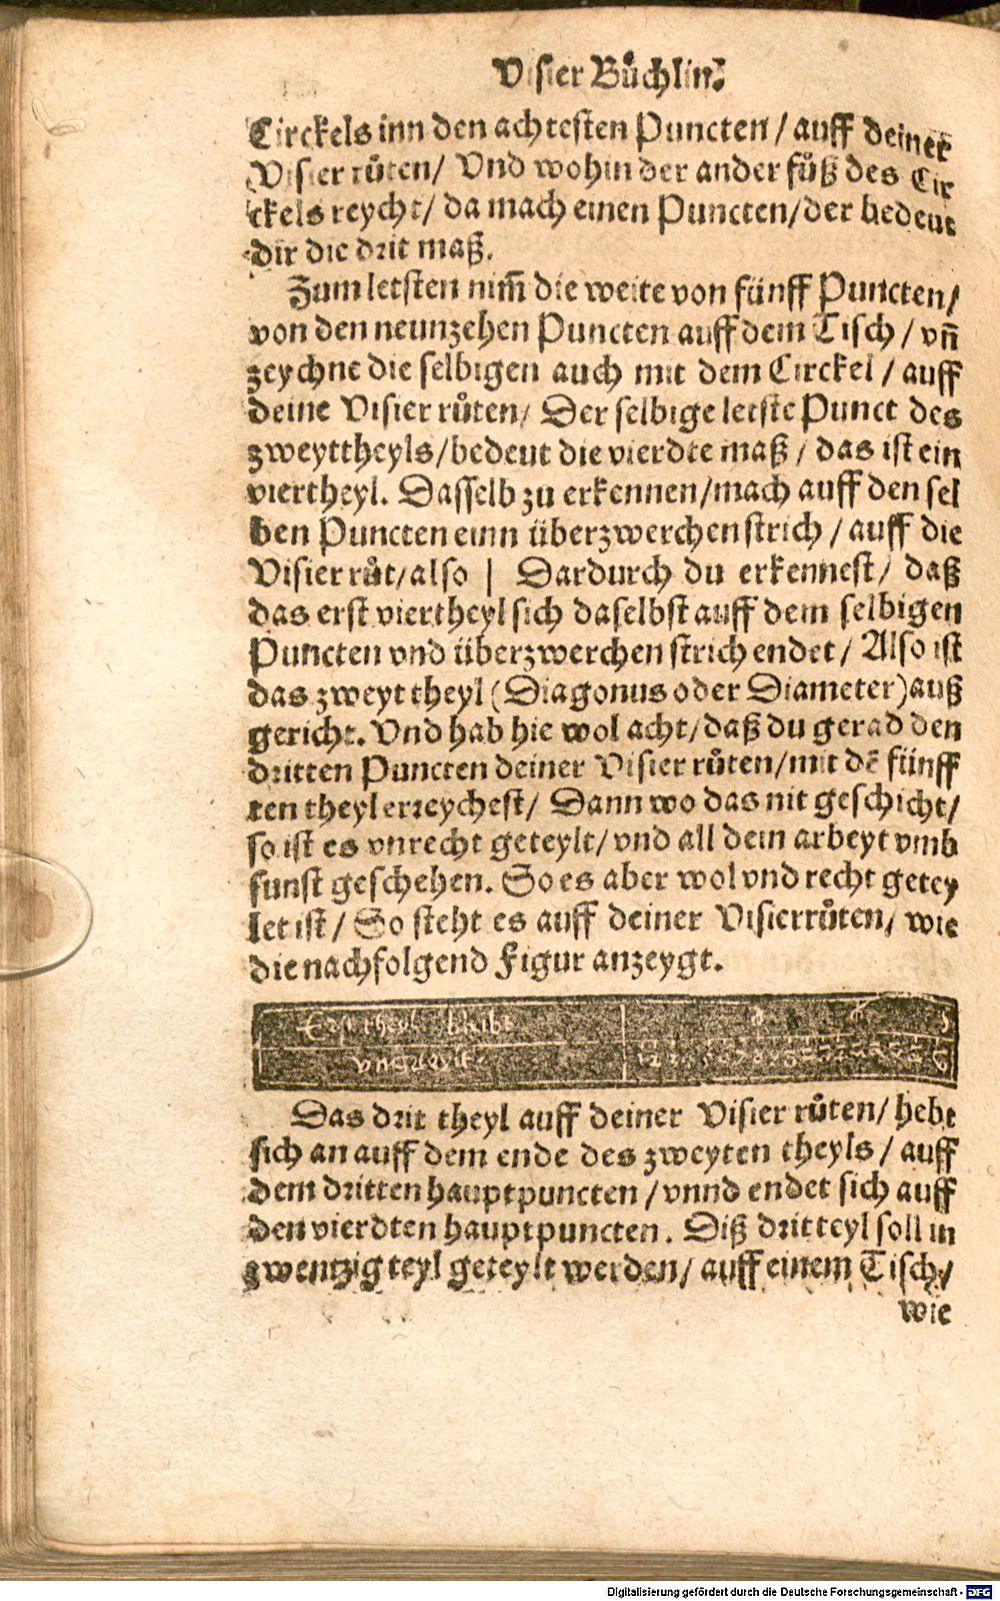 Visier Bůchlin.
Circkels inn den achtesten Puncten / auff deiner
Visier růten/ Vnd wohin der ander fůß des Cir
ckels reycht/ da mach einen Puncten/der bedeut
dir die drit maß.
Zum letsten nim̃ die weite von fünff Puncten/
von den neunzehen Puncten auff dem Tisch / vñ
zeychne die selbigen auch mit dem Circkel / auff
deine Visier růten/ Der selbige letste Punct des
zweyttheyls/bedeut die vierdte maß / das ist ein
viertheyl. Dasselb zu erkennen/mach auff den sel
ben Puncten einn überzwerchen strich / auff die
Visier růt/also | Dardurch du erkennest/ daß
das erst viertheyl sich daselbst auff dem selbigen
Puncten vnd überzwerchen strich endet/ Also ist
das zweyt theyl (Diagonus oder Diameter) auß
gericht. Vnd hab hie wol acht/daß du gerad den
dritten Puncten deiner Visier růten/mit dẽ fünff
ten theyl erreychest/ Dann wo das nit geschicht/
so ist es vnrecht geteylt/vnd all dein arbeyt vmb
sunst geschehen. So es aber wol vnd recht getey
let ist/ So steht es auff deiner Visierrůten, wie
die nachfolgend Figur anzeygt.
Erst theyl bleibt
vngeteylt.
Das drit theyl auff deiner Visier růten/ hebt
sich an auff dem ende des zweyten theyls / auff
dem dritten hauptpuncten / vnnd endet sich auff
den vierdten hauptpuncten. Diß drit teyl soll in
zwentzig teyl geteylt werden/ auff einem Tisch/
wie
Digitalisierung gefördert durch die Deutsche Forschungsgemeinschaft - DFG